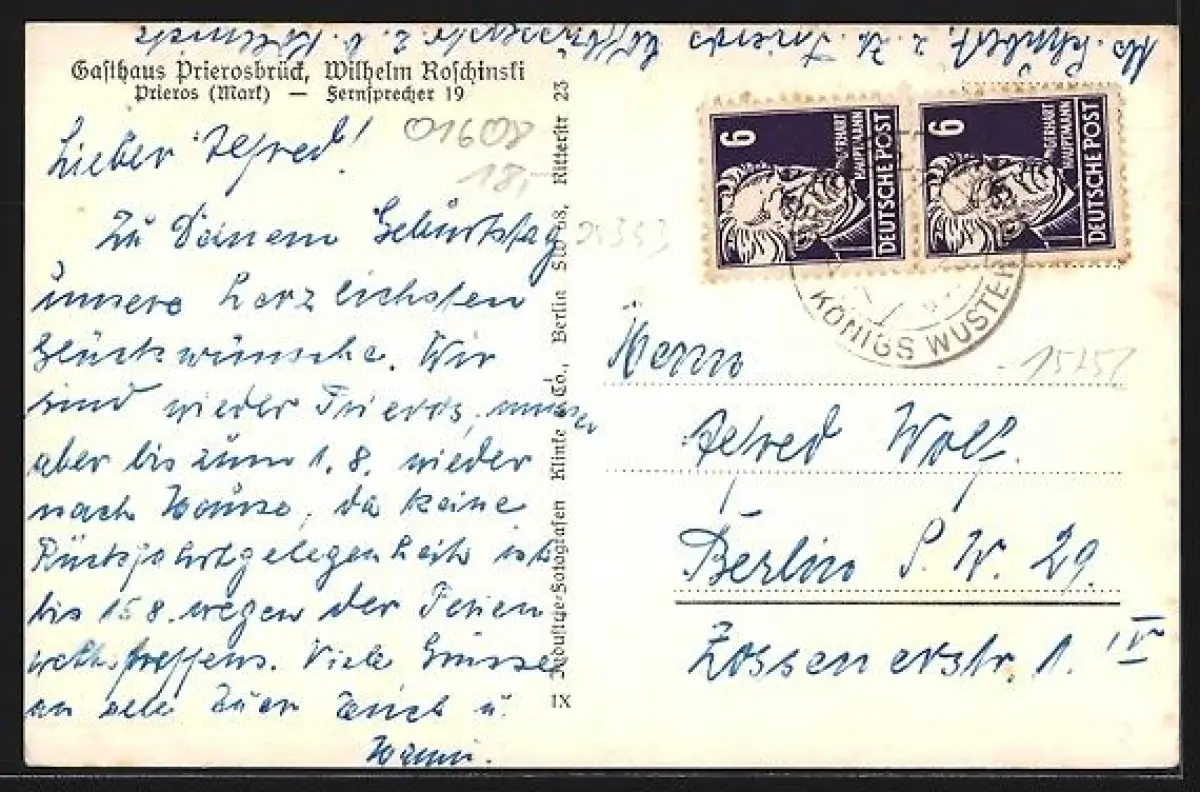 Gasthaus Prierosbrück, Wilhelm Roschinski
Prieros (Mark) — Fernsprecher 19
01608
18,-
Lieber Alfred!
Zu Deinem Geburtstag
unsere herzlichsten
Glückwünsche. Wir
sind wieder Prieros, müssen
aber bis zum 1.8. wieder
nach Hause, da keine
Rückfahrtgelegenheit ist
bis 15.8. wegen der Ferien
treffens. Viele Grüsse
an alle Euer Erich u.
Industrie-Fotografen Klinke & Co., Berlin SW 68, Ritterstr 23
IX
25353
6
GERHART
HAUPTMANN
DEUTSCHE POST
6
GERHART
HAUPTMANN
DEUTSCHE POST
KÖNIGS WUSTER
Herrn
Alfred Wolf.
Berlin S. W. 29.
Zossenerstr. 1. IV